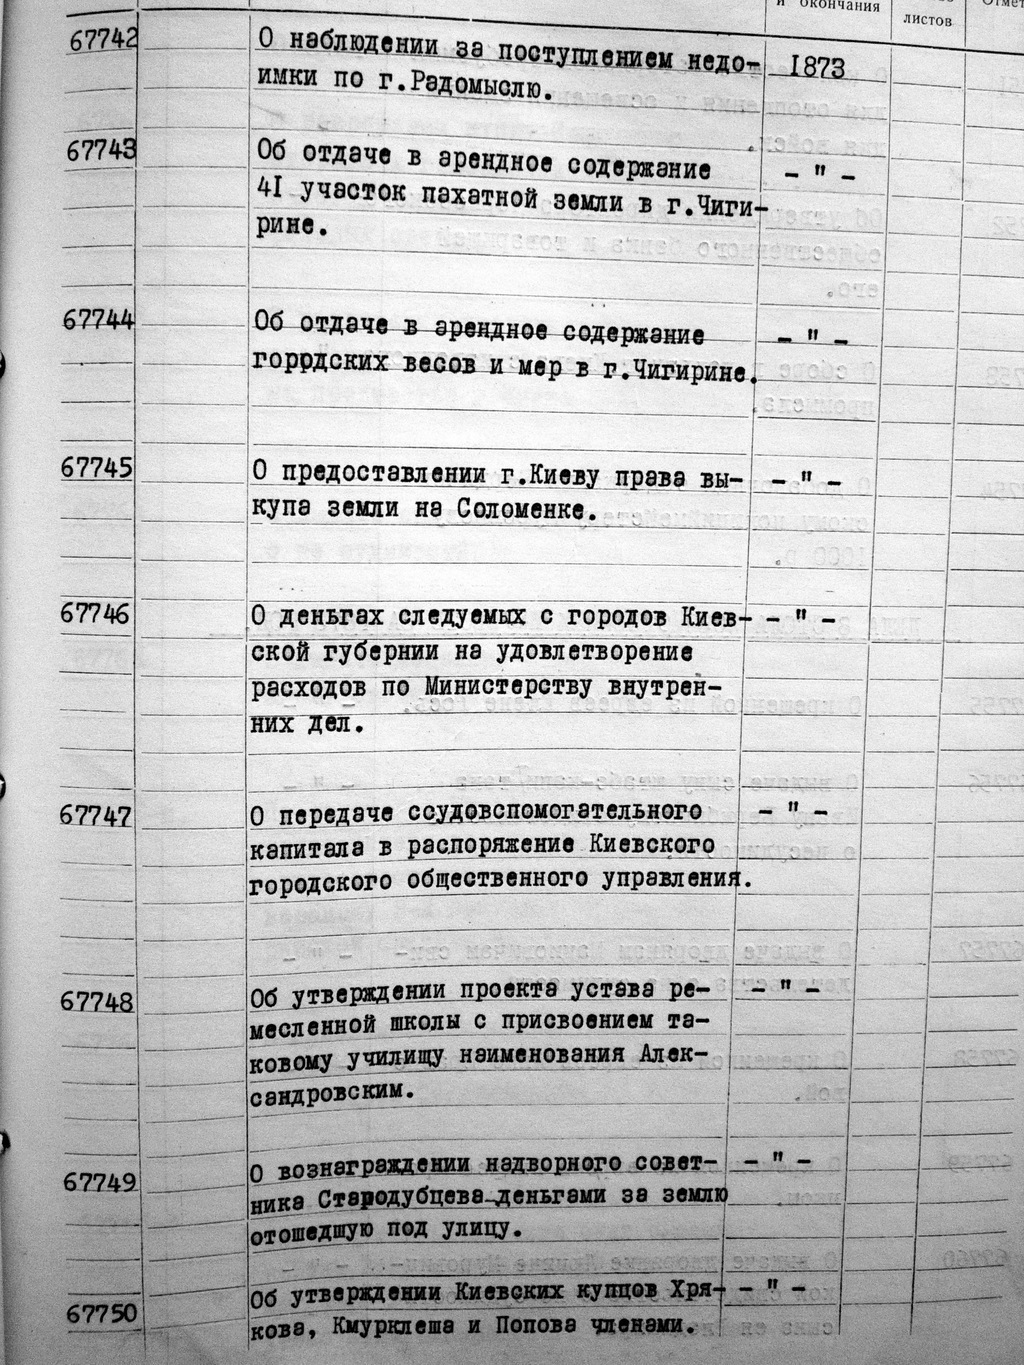 и окончания
листов
67742 О наблюдении за поступлением недо- 1873
имки по г.Радомыслю.
67743 Об отдаче в арендное содержание - " -
4I участок пахатной земли в г.Чиги-
рине.
67744 Об отдаче в арендное содержание - " -
горрдских весов и мер в г.Чигирине.
67745 О предоставлении г.Киеву права вы- - " -
купа земли на Соломенке.
67746 О деньгах следуемых с городов Киев- - " -
ской губернии на удовлетворение
расходов по Министерству внутрен-
них дел.
67747 О передаче ссудовспомогательного - " -
капитала в распоряжение Киевского
городского общественного управления.
67748 Об утверждении проекта устава ре- - " -
месленной школы с присвоением та-
ковому училищу наименования Алек-
сандровским.
67749 О вознаграждении надворного совет- - " -
ника Стародубцева деньгами за землю
отошедшую под улицу.
67750 Об утверждении Киевских купцов Хря- - " -
кова, Кмурклеша и Попова членами.